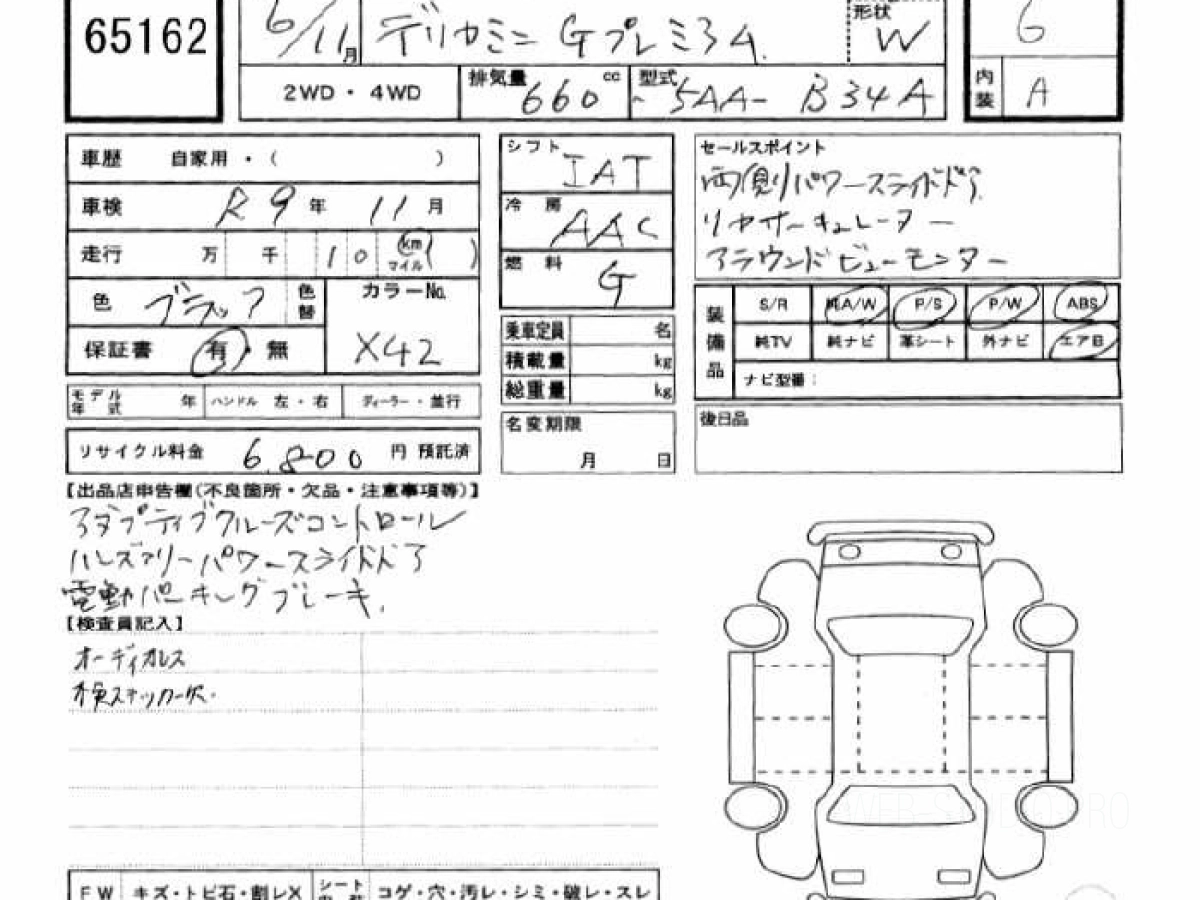 65162
6/11月 デリカミニ Gプレミアム 形状 W
G
2WD・4WD 排気量 660 cc 型式 5AA- B34A
内装 A
車歴 自家用・( )
車検 R9年 11月
走行 万 千 10 km マイル ( )
色 ブラック 色替 カラーNo.
保証書 有・無 X42
モデル年式 年 ハンドル 左・右 ディーラー・並行
リサイクル料金 6,800 円 預託済
シフト IAT
冷房 AAC
燃料 G
乗車定員 名
積載量 kg
総重量 kg
名変期限
月 日
セールスポイント
両側パワースライドドア
リヤサーキュレーター
アラウンドビューモニター
装備品 S/R 純A/W P/S P/W ABS
純TV 純ナビ 革シート 外ナビ エアB
ナビ型番:
後日品
【出品店申告欄(不良箇所・欠品・注意事項等)】
アダプティブクルーズコントロール
ハンズフリーパワースライドドア
電動パーキングブレーキ.
【検査員記入】
オーディオレス
検ステッカー欠.
FW キズ・トビ石・割レX シート コゲ・穴・汚レ・シミ・破レ・スレ